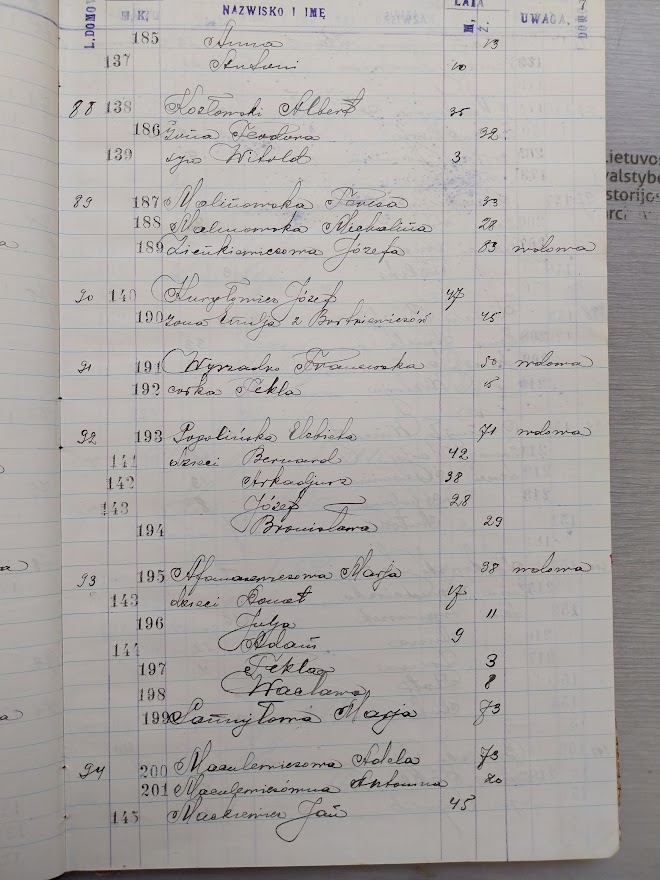 L.DOMOW M. K. NAZWISKO I IMĘ LATA M. Ż. UWAGA. 7
185 Anna 13
137 Antoni 10
88 138 Kozłowski Albert 35
186 żona Teodora 32
139 syn Witold 3
89 187 Malinowska Teresa 33
188 Malinowska Michalina 28
189 Józefa 83 wdowa
90 140 Józef 47
190 żona Emilja z 45
91 191 50 wdowa
192 córka Tekla 15
92 193 Popolińska Elżbieta 71 wdowa
141 dzieci Bernard 42
142 Arkadjusz 38
143 Józef 28
194 Bronisława 29
93 195 Afanasewiczowa Marja 38 wdowa
143 dzieci Donat 17
196 Julja 11
144 Adam 9
197 Tekla 3
198 Wacława 8
199 Marja 73
94 200 Adela 73
201 Antonina 20
145 Mackiewicz Jan 45
Lietuvos
valstybė
istorijos